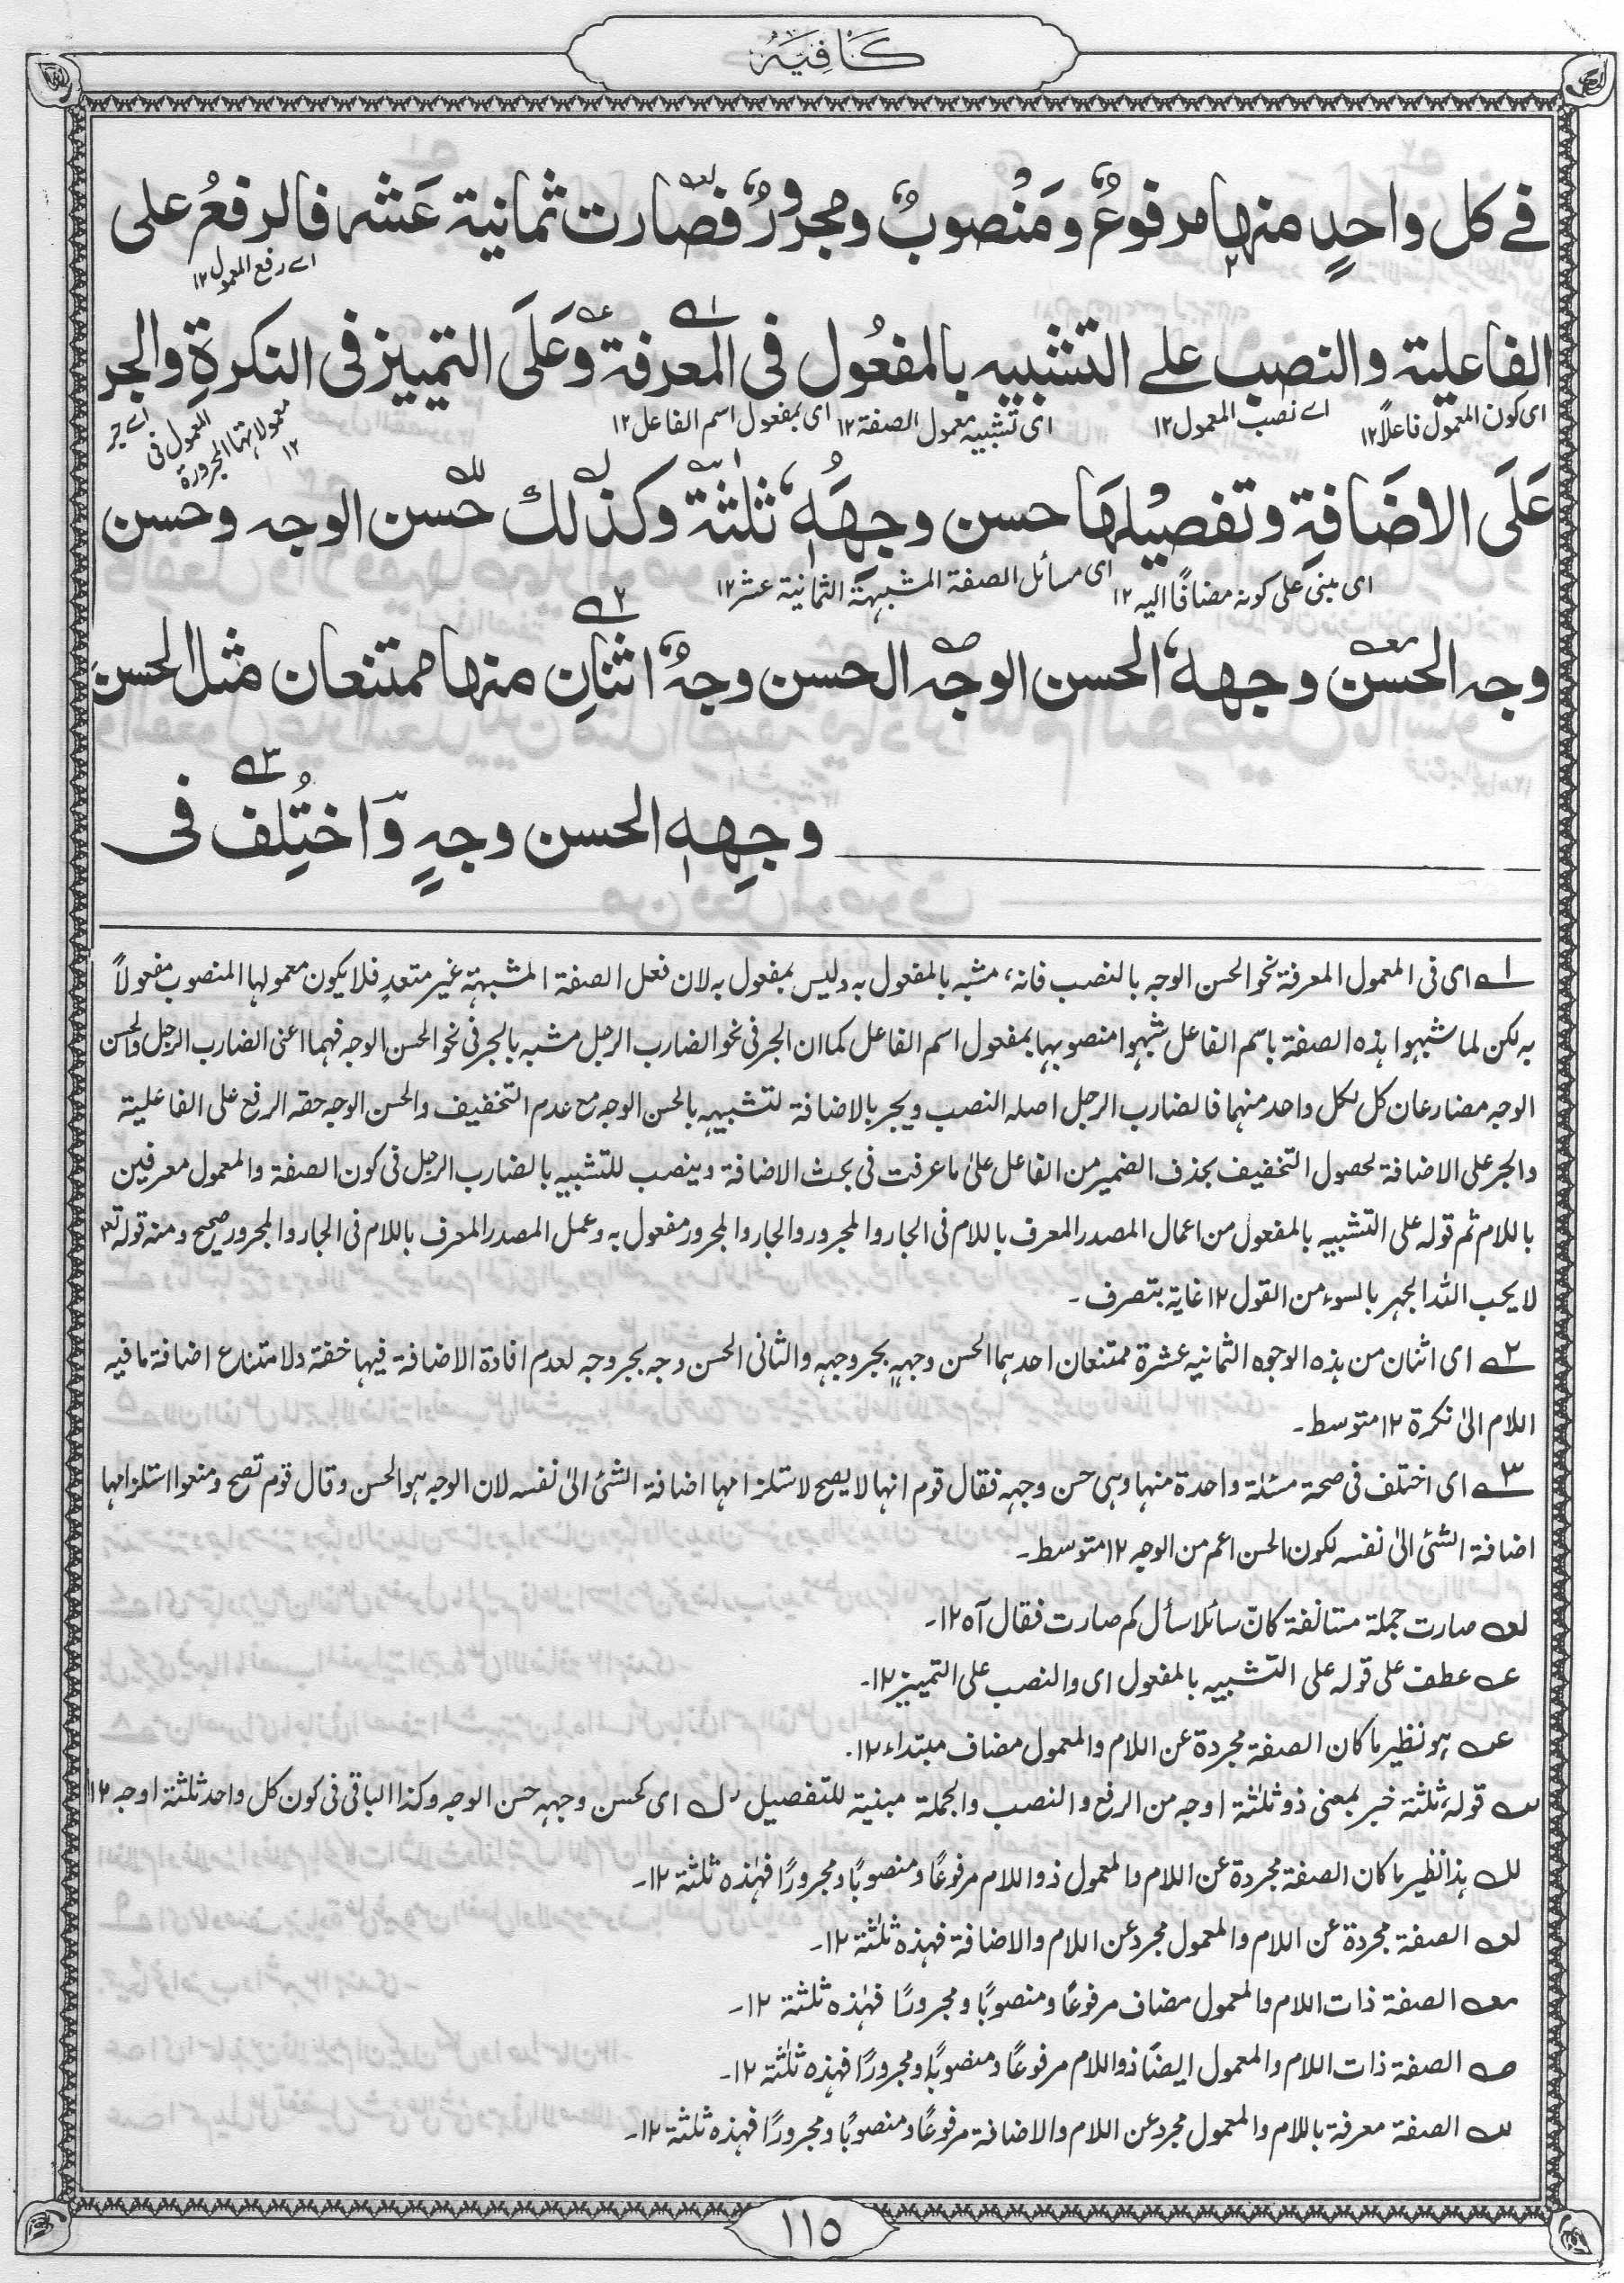 كَافِيَه
فے كل واحدٍ منها مرفوعٌ ومَنْصوبٌ ومجرورٌ فصَارت ثمانية عَشر فالرفعُ على
اے رفع المعمول ١٢
الفاعلية والنصب علے التشبيه بالمفعُول فى المعرفة وَعَلَى التمييز فى النكرةِ والجر
اى كون المعمول فاعلاً ١٢ اے نصب المعمول ١٢ اى تشبيه معمول الصفة ١٢ اى بمفعول اسم الفاعل ١٢
اے جر المعمول فى معمولاتها المجرورة ١٢
عَلَى الاضَافةِ وتفصيْلهَا حسن وجهَهُ ثلثة وكذٰلك حَسن الوجه وحسن
اى مبنى على كونه مضافًا اليه ١٢ اى مسائل الصفة المشبهة الثمانية عشر ١٢
وجه الحسَن وجهه الحسن الوجه الحسن وجهٌ اثنانِ منها ممتنعان مثل الحسن
وجهِهٖ الحسن وجهٍ وَاختُلِف فى
١ اى فى المعمول المعرفة نحو الحسن الوجه بالنصب فانه مشبه بالمفعول به وليس بمفعول به لان فعل الصفة المشبهة غير متعدٍ فلا يكون معمولها المنصوب مفعولاً
به لكن لما شبهوا هذه الصفة باسم الفاعل شبهوا منصوبها بمفعول اسم الفاعل كما ان الجر فى نحو الضارب الرجل مشبه بالجر فى نحو الحسن الوجه فهما اعنى الضارب الرجل والحسن
الوجه مضارعان كل لكل واحد منهما فالضارب الرجل اصله النصب ويجر بالاضافة لتشبيهه بالحسن الوجه مع عدم التخفيف والحسن الوجه حقه الرفع على الفاعلية
والجر على الاضافة لحصول التخفيف بحذف الضمير من الفاعل علىٰ ما عرفت فى بحث الاضافة وينصب للتشبيه بالضارب الرجل فى كون الصفة والمعمول معرفين
باللام ثم قوله على التشبيه بالمفعول من اعمال المصدر المعرف باللام فى الجار والمجرور والجار والمجرور مفعول به وعمل المصدر المعرف باللام فى الجار والمجرور صحيح ومنه قوله تعٰ
لا يحب الله الجهر بالسوء من القول ١٢ غاية بتصرف۔
٢ اى اثنان من هذه الوجوه الثمانيه عشرة ممتنعان احدهما الحسن وجههٖ بجر وجهه والثانى الحسن وجه بجر وجه لعدم افادة الاضافة فيها خفة ولامتناع اضافة ما فيه
اللام الىٰ نكرة ١٢ متوسط۔
٣ اى اختلف فى صحة مسئلة واحدة منها وهى حسن وجهه فقال قوم انها لا يصح لاستلزامها اضافة الشئ الىٰ نفسه لان الوجه هو الحسن وقال قوم تصح ومنعوا استلزامها
اضافة الشئ الىٰ نفسه لكون الحسن اعم من الوجه ١٢ متوسط۔
لعه صارت جملة مستانفة كانّ سائلا سأل كم صارت فقال آه ١٢۔
عه عطف على قوله على التشبيه بالمفعول اى والنصب على التمييز ١٢۔
عه هو نظير ما كان الصفة مجردة عن اللام والمعمول مضاف مبتداء ١٢۔
سه قوله ثلثة خبر بمعنى ذو ثلٰثة اوجه من الرفع والنصب والجملة مبنية للتفصيل لـه اى كحسن وجهه حسن الوجه وكذا الباقى فى كون كل واحد ثلثة اوجه ١٢
للـه هذا نظير ما كان الصفة مجردة عن اللام والمعمول ذو اللام مرفوعًا ومنصوبًا ومجرورًا فهٰذه ثلٰثة ١٢۔
لعه الصفة مجردة عن اللام والمعمول مجرد عن اللام والاضافة فهذه ثلٰثة ١٢۔
معه الصفة ذات اللام والمعمول مضاف مرفوعًا ومنصوبًا ومجرورًا فهٰذه ثلثة ١٢۔
صه الصفة ذات اللام والمعمول ايضًا ذو اللام مرفوعًا ومنصوبًا ومجرورًا فهذه ثلٰثة ١٢۔
سه الصفة معرفة باللام والمعمول مجرد عن اللام والاضافة مرفوعًا ومنصوبًا ومجرورًا فهذه ثلثة ١٢۔
١١٥